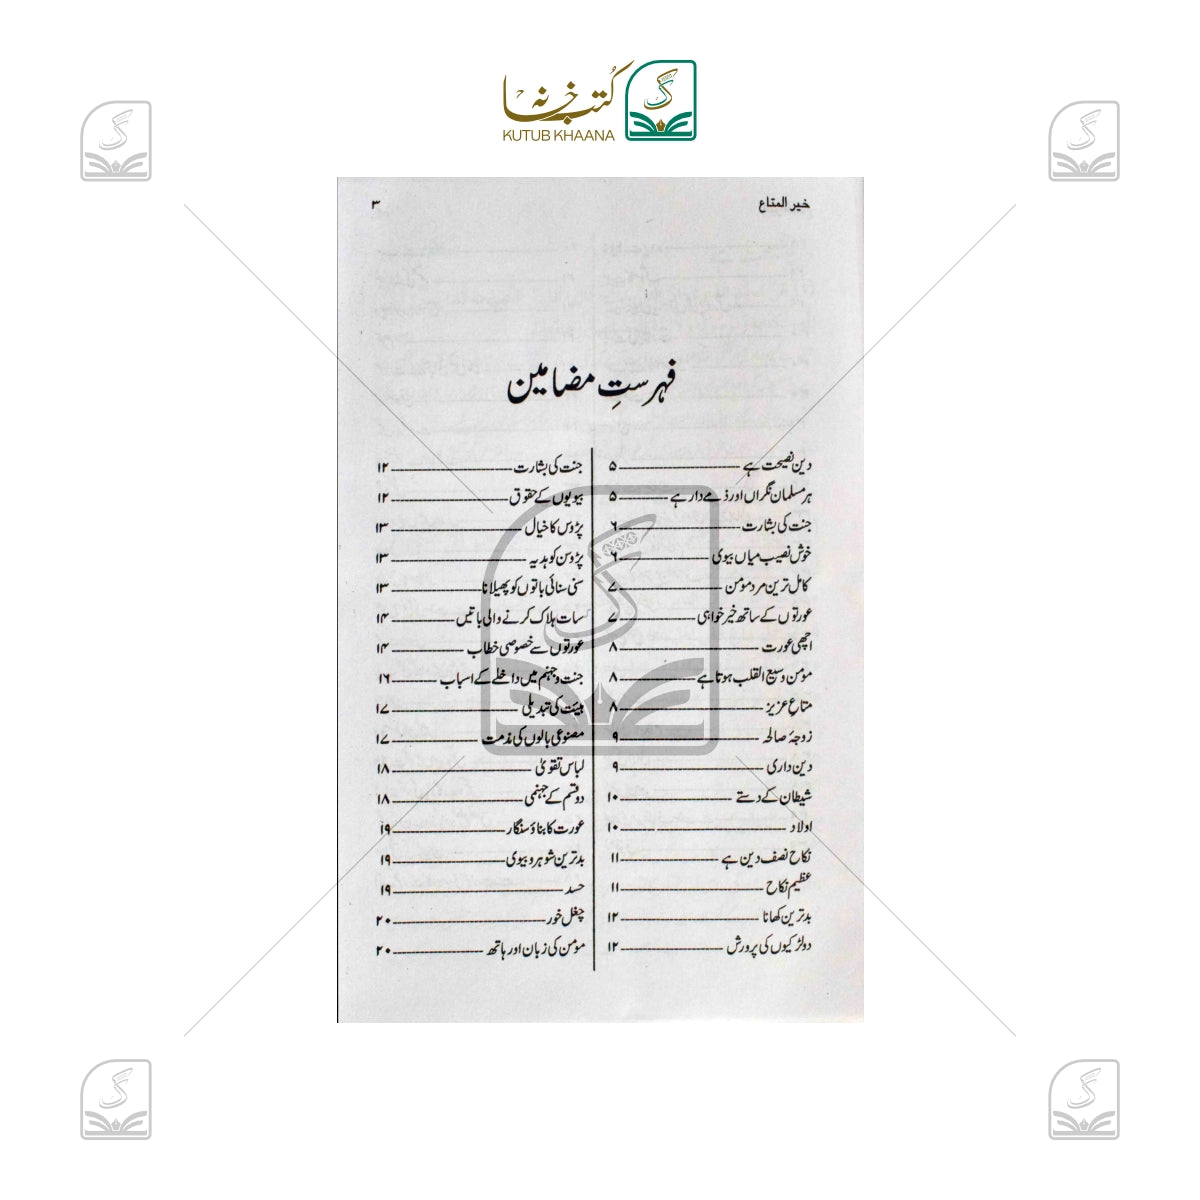 کتب خانہ
KUTUB KHAANA
خیر المتاع
۳
فہرستِ مضامین
دین نصیحت ہے ۵
ہر مسلمان نگراں اور ذمے دار ہے ۵
جنت کی بشارت ۶
خوش نصیب میاں بیوی ۶
کامل ترین مرد مومن ۷
عورتوں کے ساتھ خیر خواہی ۷
اچھی عورت ۸
مومن وسیع القلب ہوتا ہے ۸
متاعِ عزیز ۸
زوجۂ صالحہ ۹
دین داری ۹
شیطان کے دستے ۱۰
اولاد ۱۰
نکاح نصف دین ہے ۱۱
عظیم نکاح ۱۱
بدترین کھانا ۱۲
دو لڑکیوں کی پرورش ۱۲
جنت کی بشارت ۱۲
بیویوں کے حقوق ۱۲
پڑوس کا خیال ۱۳
پڑوسن کو ہدیہ ۱۳
سنی سنائی باتوں کو پھیلانا ۱۳
سات ہلاک کرنے والی باتیں ۱۴
عورتوں سے خصوصی خطاب ۱۴
جنت وجہنم میں داخلے کے اسباب ۱۶
ہیئت کی تبدیلی ۱۷
مصنوعی بالوں کی مذمت ۱۷
لباس تقویٰ ۱۸
دو قسم کے جہنمی ۱۸
عورت کا بناؤ سنگار ۱۹
بدترین شوہر و بیوی ۱۹
حسد ۱۹
چغل خور ۲۰
مومن کی زبان اور ہاتھ ۲۰